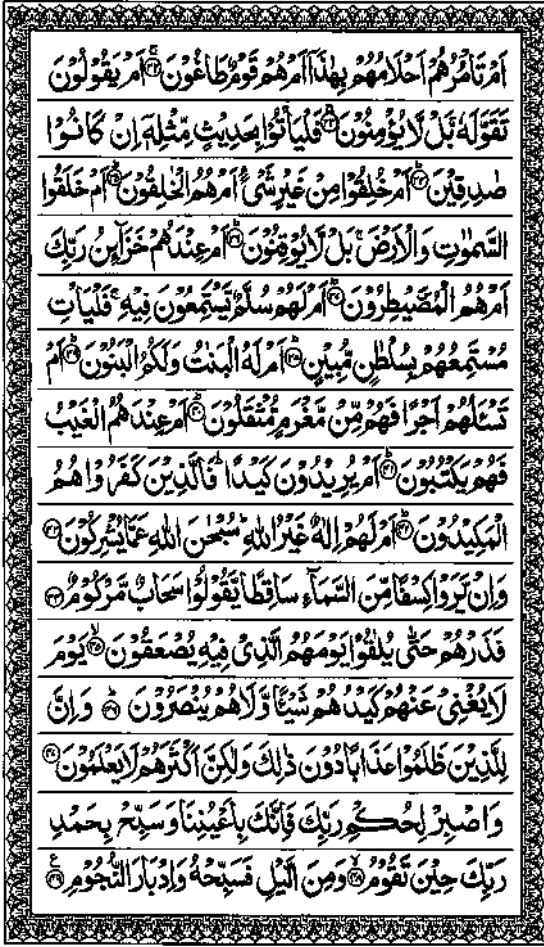 اَمۡ تَاۡمُرُهُمۡ اَحۡلَامُهُمۡ بِهٰذَاۤ اَمۡ هُمۡ قَوۡمٌ طَاغُوۡنَ ۚ‏﴿۳۲﴾ اَمۡ يَقُوۡلُوۡنَ
تَقَوَّلَهٗ ۚ بَلْ لَّا يُؤۡمِنُوۡنَ ۚ‏﴿۳۳﴾ فَلۡيَاۡتُوۡا بِحَدِيۡثٍ مِّثۡلِهٖۤ اِنۡ كَانُوۡا
صٰدِقِيۡنَ ؕ‏﴿۳۴﴾ اَمۡ خُلِقُوۡا مِنۡ غَيۡرِ شَىۡءٍ اَمۡ هُمُ الۡخٰلِقُوۡنَ ؕ‏﴿۳۵﴾ اَمۡ خَلَقُوا
السَّمٰوٰتِ وَالۡاَرۡضَ ۚ بَلْ لَّا يُوۡقِنُوۡنَ ؕ‏﴿۳۶﴾ اَمۡ عِنۡدَهُمۡ خَزَآٮِٕنُ رَبِّكَ
اَمۡ هُمُ الۡمُصَۜيۡطِرُوۡنَ ؕ‏﴿۳۷﴾ اَمۡ لَهُمۡ سُلَّمٌ يَّسۡتَمِعُوۡنَ فِيۡهِ ۚ فَلۡيَاۡتِ
مُسۡتَمِعُهُمۡ بِسُلۡطٰنٍ مُّبِيۡنٍ ؕ‏﴿۳۸﴾ اَمۡ لَهُ الۡبَنٰتُ وَلَـكُمُ الۡبَنُوۡنَ ؕ‏﴿۳۹﴾ اَمۡ
تَسۡـَٔـلُهُمۡ اَجۡرًا فَهُمۡ مِّنۡ مَّغۡرَمٍ مُّثۡقَلُوۡنَ ؕ‏﴿۴۰﴾ اَمۡ عِنۡدَهُمُ الۡغَيۡبُ
فَهُمۡ يَكۡتُبُوۡنَ ؕ‏﴿۴۱﴾ اَمۡ يُرِيۡدُوۡنَ كَيۡدًا ؕ فَالَّذِيۡنَ كَفَرُوۡا هُمُ
الۡمَكِيۡدُوۡنَ ؕ‏﴿۴۲﴾ اَمۡ لَهُمۡ اِلٰهٌ غَيۡرُ اللّٰهِ ؕ سُبۡحٰنَ اللّٰهِ عَمَّا يُشۡرِكُوۡنَ‏﴿۴۳﴾
وَاِنۡ يَّرَوۡا كِسۡفًا مِّنَ السَّمَآءِ سَاقِطًا يَّقُوۡلُوۡا سَحَابٌ مَّرۡكُوۡمٌ‏﴿۴۴﴾
فَذَرۡهُمۡ حَتّٰى يُلٰقُوۡا يَوۡمَهُمُ الَّذِىۡ فِيۡهِ يُصۡعَقُوۡنَ ۙ‏﴿۴۵﴾ يَوۡمَ
لَا يُغۡنِىۡ عَنۡهُمۡ كَيۡدُهُمۡ شَيۡـًٔـا وَّلَا هُمۡ يُنۡصَرُوۡنَ ؕ‏﴿۴۶﴾ وَاِنَّ
لِلَّذِيۡنَ ظَلَمُوۡا عَذَابًا دُوۡنَ ذٰلِكَ وَلٰـكِنَّ اَكۡثَرَهُمۡ لَا يَعۡلَمُوۡنَ‏﴿۴۷﴾
وَاصۡبِرۡ لِحُكۡمِ رَبِّكَ فَاِنَّكَ بِاَعۡيُنِنَا وَسَبِّحۡ بِحَمۡدِ
رَبِّكَ حِيۡنَ تَقُوۡمُ ۙ‏﴿۴۸﴾ وَمِنَ الَّيۡلِ فَسَبِّحۡهُ وَاِدۡبَارَ النُّجُوۡمِ‏﴿۴۹﴾ ع